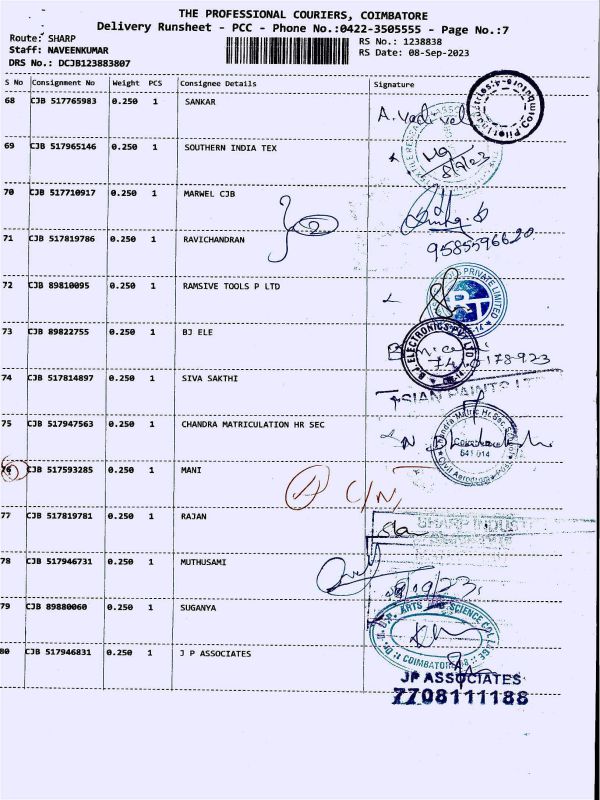 THE PROFESSIONAL COURIERS, COIMBATORE
Delivery Runsheet - PCC - Phone No.:0422-3505555 - Page No.:7
Route: SHARP
Staff: NAVEENKUMAR
DRS No.: DCJB123883807
RS No.: 1238838
RS Date: 08-Sep-2023
S No Consignment No Weight PCS Consignee Details Signature
68 CJB 517765983 0.250 1 SANKAR A. Vadivel
Pilot Industries Coimbatore-4
69 CJB 517965146 0.250 1 SOUTHERN INDIA TEX
8/9/23
70 CJB 517710917 0.250 1 MARWEL CJB
71 CJB 517819786 0.250 1 RAVICHANDRAN 9585596620
72 CJB 89810095 0.250 1 RAMSIVE TOOLS P LTD
PRIVATE LIMITED
73 CJB 89822755 0.250 1 BJ ELE
B.J. ELECTRONICS PVT LTD
74 CJB 517814897 0.250 1 SIVA SAKTHI
ASIAN PAINTS
75 CJB 517947563 0.250 1 CHANDRA MATRICULATION HR SEC
Chandra Matric Hr Sec School
641 014
Civil Aerodrome Post
76 CJB 517593285 0.250 1 MANI
C/N
77 CJB 517819781 0.250 1 RAJAN
SHARP INDUST
78 CJB 517946731 0.250 1 MUTHUSAMI
79 CJB 89880060 0.250 1 SUGANYA
ARTS AND SCIENCE COLLEGE
COIMBATORE
80 CJB 517946831 0.250 1 J P ASSOCIATES
JP ASSOCIATES
7708111188